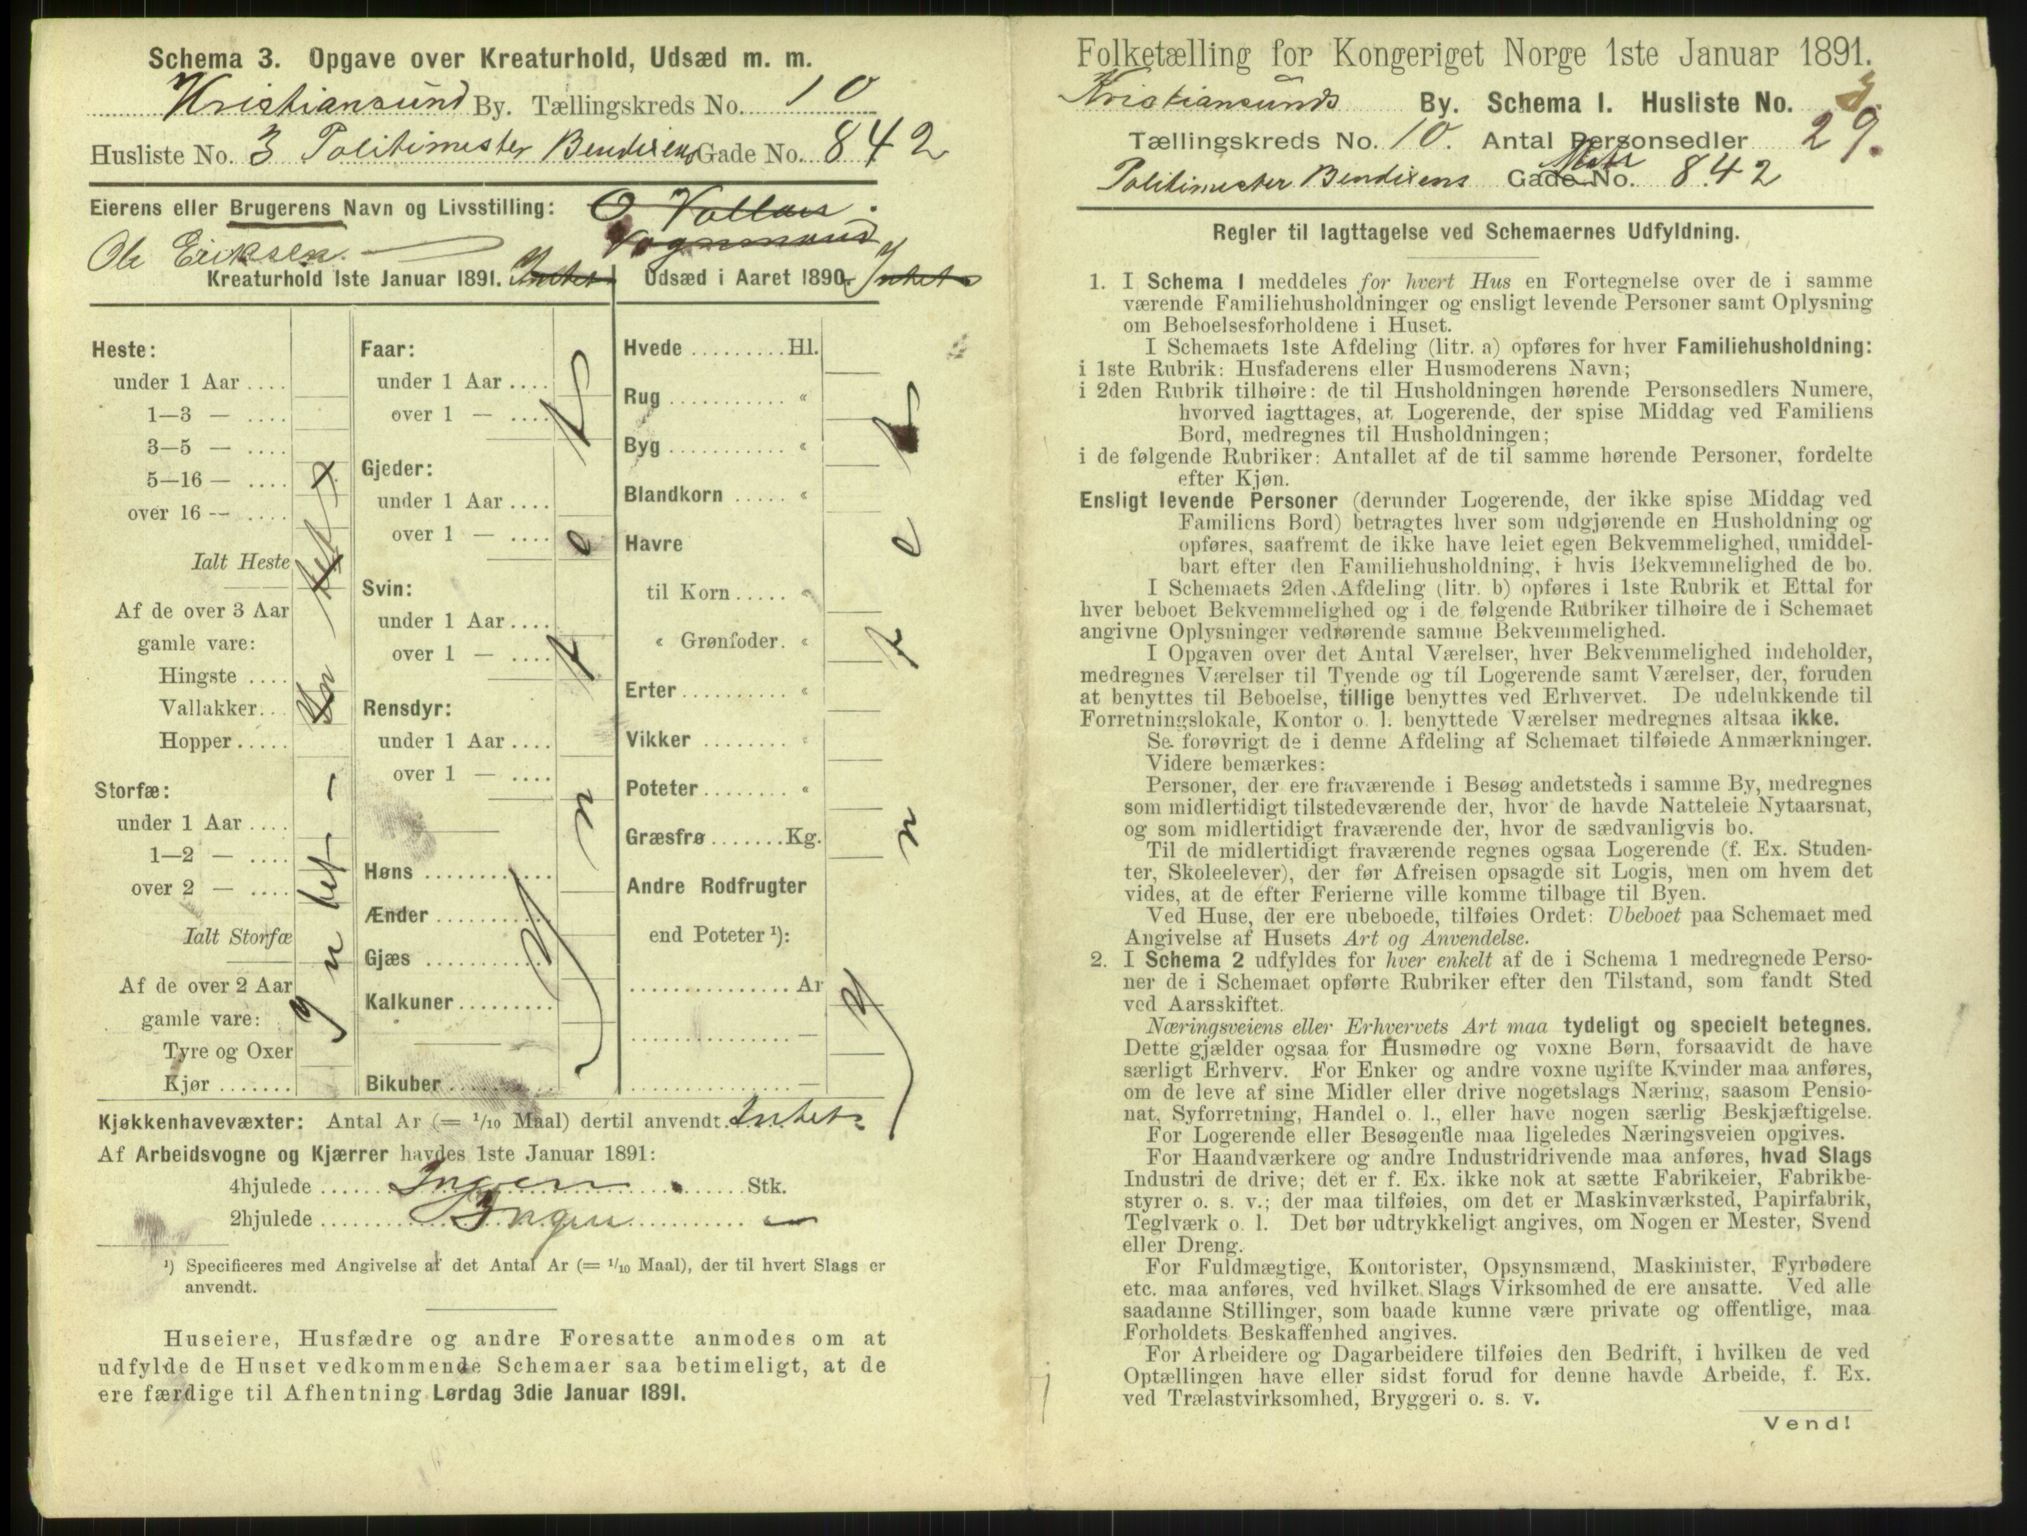 Schema 3. Opgave over Kreaturhold, Udsæd m. m.
Kristiansund By. Tællingskreds No. 10
Husliste No. 3 Politimester Bendixens Gade No. 842
Eierens eller Brugerens Navn og Livsstilling: O Vollan.
Vognmand
Ole Eriksen.
Kreaturhold 1ste Januar 1891. Intet
Heste:
under 1 Aar ....
1—3 — ....
3—5 — ....
5—16 — ....
over 16 -- ....
Ialt Heste
Af de over 3 Aar
gamle vare:
Hingste ....
Vallakker...
Hopper.....
Storfæ:
under 1 Aar ....
1—2 — ....
over 2 — ....
Ialt Storfæ
Af de over 2 Aar
gamle vare:
Tyre og Oxer
Kjør .......
Intet
Intet
Faar:
under 1 Aar ....
over 1 — ....
Gjeder:
under 1 Aar ....
over 1 — ....
Svin:
under 1 Aar ....
over 1 — ....
Rensdyr:
under 1 Aar ....
over 1 — ....
Høns ............
Ænder ...........
Gjæs ............
Kalkuner .........
Bikuber ..........
Udsæd i Aaret 1890. Intet
Hvede .........Hl.
Rug ........... «
Byg ........... «
Blandkorn ..... «
Havre
til Korn..... «
« Grønfoder. «
Erter.......... «
Vikker ........ «
Poteter........ «
Græsfrø .......Kg.
Andre Rodfrugter
end Poteter ¹):
...............Ar
............... —
............... —
Kjøkkenhavevæxter: Antal Ar (= 1/10 Maal) dertil anvendt. Intet
Af Arbeidsvogne og Kjærrer havdes 1ste Januar 1891:
4hjulede ...... Ingen ...... Stk.
2hjulede ...... Ingen ...... —
¹) Specificeres med Angivelse af det Antal Ar (= 1/10 Maal), der til hvert Slags er
anvendt.
Huseiere, Husfædre og andre Foresatte anmodes om at
udfylde de Huset vedkommende Schemaer saa betimeligt, at de
ere færdige til Afhentning Lørdag 3die Januar 1891.
Folketælling for Kongeriget Norge 1ste Januar 1891.
Kristiansunds By. Schema 1. Husliste No. 3.
Tællingskreds No. 10. Antal Personsedler 29.
Politimester Bendixens Gade No. 842
Regler til Iagttagelse ved Schemaernes Udfyldning.
1. I Schema 1 meddeles for hvert Hus en Fortegnelse over de i samme
værende Familiehusholdninger og ensligt levende Personer samt Oplysning
om Beboelsesforholdene i Huset.
I Schemaets 1ste Afdeling (litr. a) opføres for hver Familiehusholdning:
i 1ste Rubrik: Husfaderens eller Husmoderens Navn;
i 2den Rubrik tilhøire: de til Husholdningen hørende Personsedlers Numere,
hvorved iagttages, at Logerende, der spise Middag ved Familiens
Bord, medregnes til Husholdningen;
i de følgende Rubriker: Antallet af de til samme hørende Personer, fordelte
efter Kjøn.
Ensligt levende Personer (derunder Logerende, der ikke spise Middag ved
Familiens Bord) betragtes hver som udgjørende en Husholdning og
opføres, saafremt de ikke have leiet egen Bekvemmelighed, umiddel-
bart efter den Familiehusholdning, i hvis Bekvemmelighed de bo.
I Schemaets 2den Afdeling (litr. b) opføres i 1ste Rubrik et Ettal for
hver beboet Bekvemmelighed og i de følgende Rubriker tilhøire de i Schemaet
angivne Oplysninger vedrørende samme Bekvemmelighed.
I Opgaven over det Antal Værelser, hver Bekvemmelighed indeholder,
medregnes Værelser til Tyende og til Logerende samt Værelser, der, foruden
at benyttes til Beboelse, tillige benyttes ved Erhvervet. De udelukkende til
Forretningslokale, Kontor o. l. benyttede Værelser medregnes altsaa ikke.
Se forøvrigt de i denne Afdeling af Schemaet tilføiede Anmærkninger.
Videre bemærkes:
Personer, der ere fraværende i Besøg andetsteds i samme By, medregnes
som midlertidigt tilstedeværende der, hvor de havde Natteleie Nytaarsnat,
og som midlertidigt fraværende der, hvor de sædvanligvis bo.
Til de midlertidigt fraværende regnes ogsaa Logerende (f. Ex. Studen-
ter, Skoleelever), der før Afreisen opsagde sit Logis, men om hvem det
vides, at de efter Ferierne ville komme tilbage til Byen.
Ved Huse, der ere ubeboede, tilføies Ordet: Ubeboet paa Schemaet med
Angivelse af Husets Art og Anvendelse.
2. I Schema 2 udfyldes for hver enkelt af de i Schema 1 medregnede Perso-
ner de i Schemaet opførte Rubriker efter den Tilstand, som fandt Sted
ved Aarsskiftet.
Næringsveiens eller Erhvervets Art maa tydeligt og specielt betegnes.
Dette gjælder ogsaa for Husmødre og voxne Børn, forsaavidt de have
særligt Erhverv. For Enker og andre voxne ugifte Kvinder maa anføres,
om de leve af sine Midler eller drive nogetslags Næring, saasom Pensio-
nat, Syforretning, Handel o. l., eller have nogen særlig Beskjæftigelse.
For Logerende eller Besøgende maa ligeledes Næringsveien opgives.
For Haandværkere og andre Industridrivende maa anføres, hvad Slags
Industri de drive; det er f. Ex. ikke nok at sætte Fabrikeier, Fabrikbe-
styrer o. s. v.; der maa tilføies, om det er Maskinværksted, Papirfabrik,
Teglværk o. l. Det bør udtrykkeligt angives, om Nogen er Mester, Svend
eller Dreng.
For Fuldmægtige, Kontorister, Opsynsmænd, Maskinister, Fyrbødere
etc. maa anføres, ved hvilket Slags Virksomhed de ere ansatte. Ved alle
saadanne Stillinger, som baade kunne være private og offentlige, maa
Forholdets Beskaffenhed angives.
For Arbeidere og Dagarbeidere tilføies den Bedrift, i hvilken de ved
Optællingen have eller sidst forud for denne havde Arbeide, f. Ex.
ved Trælastvirksomhed, Bryggeri o. s. v.
Vend!